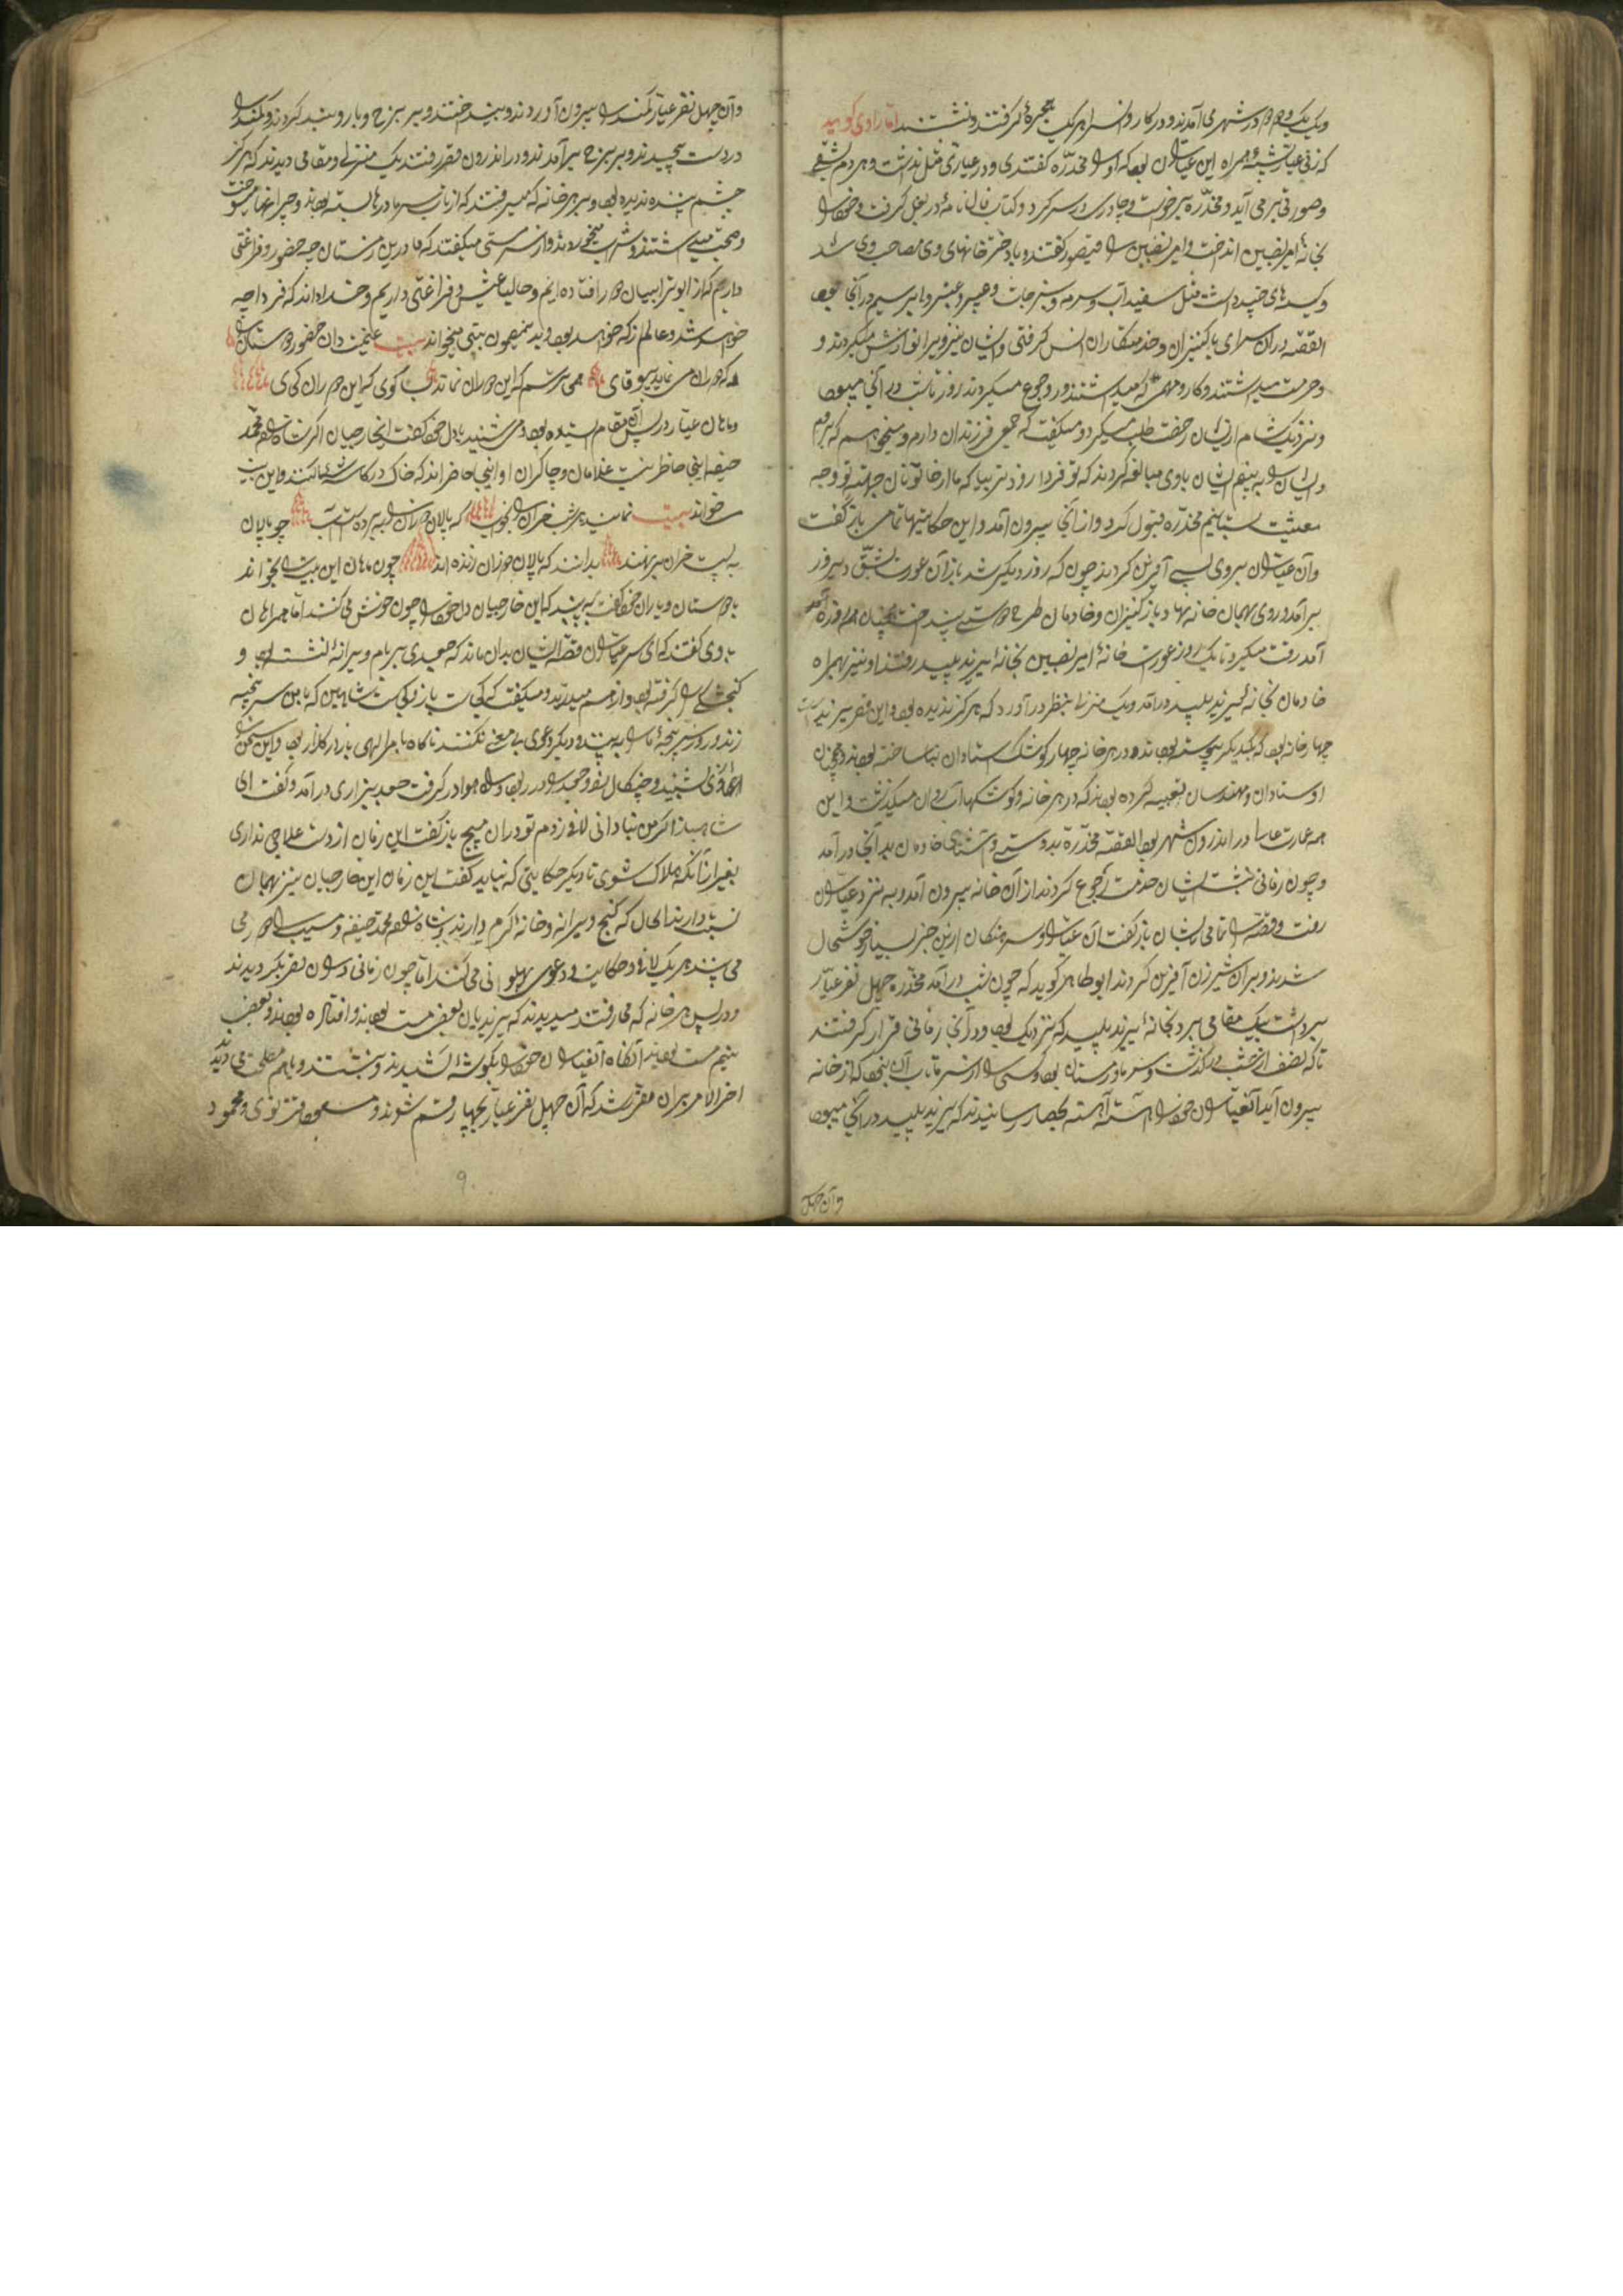 ویک یک و دو دو در شهر می آمدند و در کاروانسرا هر یک حجرهٔ گرفتند و نشستند اما راوی گوید
که زنی عیار پیشهٔ همراه این عیاران بود که او را مخدّره گفتندی و در عیاری مثل نداشت و هر دم بشقی
و صورتی بر می آید و مخدّره برخواست و چادری در سر کرد و کتاب فال نامهٔ در بغل گرفت و خود را
بخانهٔ امیر نصیبین انداخت و امیر نصیبین را قیصور گفتند و با دختر خانهای وی مصاحب وی شد
و کیسه های چند داشت مثل سفیدآب و سرمه و سرخاب و عبیر و عنبر و ابریسم در آنجا بود
القصّه در آن سرای با کنیزان و خدمتکاران انس گرفتی و ایشان نیز ویرا نوازش میکردند و
و حرمت میداشتند و کار و مهمی که میداشتند ور وجوع میکردند روز تا شب در آنجا میبود
و نزدیک شام از یشان رخصت طلب میکرد و میگفت که جمعی فرزندان دارم و میخواهم که بروم
و ایشان را به بینم ایشان با وی مبالغه کردند که تو فردا زودتر بیا که ما از خاتونان جهت تو وجه
معیشت بستانیم مخدّره قبول کرد و از آنجا بیرون آمد و این حکایتها تمامی باز گفت
و آن عیاران بروی بسی آفرین کردند چون که روز دیگر شد باز آن عورت بشقّ دیروز
برآمد و روی بهمان خانه نهاد و باز کنیزان و خادمان طرح دوستی انداخت همچنان هر روزه
آمد رفت میکرد تا یک روز عورت خانهٔ امیر نصیبین بخانهٔ یزید پلید رفتند او نیز بهمراه
خادمان بخانهٔ یزید پلید درآمد و یک منزلی بنظر در آورد که هرگز ندیده بود و این قصر یزید
چهار خانه بود که بیکدیگر پیوسته بودند و در هر خانه چهار کوشک استادان بنا ساخته بودند و همچنان
اوستادان و مهندسان تعبیه کرده بودند که در هر خانه و کوشکها آب روان میگذشت و این
همه عمارت عاسا در اندرون شهر بود القصّه مخدّره بدوستی و آشنای خادمان بدآنجا در آمد
و چون زمانی بنشست ایشان خدمت رجوع کردند از آن خانه بیرون آمد و به نزد عیاران
رفت و قصّه را تمامی بایشان باز گفت آن عیاران و سرهنکان ازین خبر بسیار خوشحال
شدند و بران شیر زن آفرین کردند ابو طاهر گوید که چون شب در آمد مخدّره چهل نفر عیّار
برداشت بیک مقامی برد بخانهٔ یزید پلید که نزدیک بود و در آنجا زمانی قرار گرفتند
تا که نصف از شب درگذشت و سرما و زمستان بود و کسی را از سرما تاب آن نبود که از خانه
بیرون آید آنعیاران خود را آهسته آهسته بحصار رسانیدند که یزید پلید در آنجا میبود
وآن چهل
وآن چهل نفر عیّار کمند را بیرون آوردند و بینداختند و بر برج و بارو بند کردند و کمند را
در دست پیچیدند و بر برج برآمدند و در اندرون قصر رفتند یک منزلی و مقامی دیدند که هرگز
چشم بینده ندیده بود و بر هر خانه که میرفتند که از تاب سرما درها بسته بودند و چراغها میسوخت
و صحبت میداشتند و شراب میخوردند و از سر مستی میگفتند که ما درین زمستان چه حضور و فراغتی
داریم که از ابو ترابیان دور افتاده ایم و حالیا عیش و فراغتی داریم و خدا داند که فردا چه
خواهد شد و عالم از که خواهد بود و بدینمضمون بیتی میخواند بیت غنیمت دان حضور دوستان را
که دوران می نماید بیوفای همی ترسم که این دوران نماند تو گوی که این دوران کی ی
و ماهان عیار در پس آن مقام استاده بود و می شنید با دل خود گفت ایخارجیان اگر شاهزاده محمّد
حنیفه اینجا حاضر نیست غلامان و چاکران او اینجا حاضراند که خاک در کاسهٔ شما کنند و این بیت
می خواند بیت نمانید هر شب خران را بخوب که پالان خران را ببرده ست آب چو پالان
به پشت خران برنهند بدانند که پالان دوزان زنده اند چون ماهان این بیت را بخواند
با دوستان و یاران خود گفت که به بینید که این خارجیان دل خود را چون خوش می کنند اما همراهان
با وی گفتند که ای سر عیاران قصّه ایشان بدان ماند که جعدی بر بام ویرانهٔ نشسته بود و
کنجشکی را گرفته بود و از هم میدرید و میگفت که کجاست باز و کجاست شاهین که با من سر پنجه
زند و زور سر پنجهٔ ما را به بیند و دیگر دعوی بیمعنی نکنند ناگاه با امر الهی باز در گذر بود و این سخن را
از جغد شنید و چنکال بزد و جغد را در ربود و راه هوا در گرفت جغد بزاری در آمد و گفت ای
شاهباز اگر من بنادانی لاف زدم تو در آن مپیچ باز گفت این زمان از دست علاجی نداری
بغیر از آنکه هلاک شوی تا دیگر حکایتی که نباید گفت این زمان این خارجیان نیز بهمان
نسبت دارند الحال که گنج ویرانه و خانهٔ گرم دارند و شاهزاده محمّد حنیفه و مسیب را دور می
می بینند هر یک لاف و حکایت و دعوی پهلوانی می کنند امّا چون زمانی دران قصر بگردیدند
و در پس هر خانه که میرفتند میدیدند که یزیدیان بعضی مست بودند و افتاده بودند و بعضی
نیم مست بودند آنکاه آنعیاران خود را بگوشهٔ کشیدند و بنشستند و باهم مصلحت می دیدند
اخر الامر بران مقرر شد که آن چهل نفر عیّار بچهار قسم شوند و مسعود قنرنوی و محمود
۹